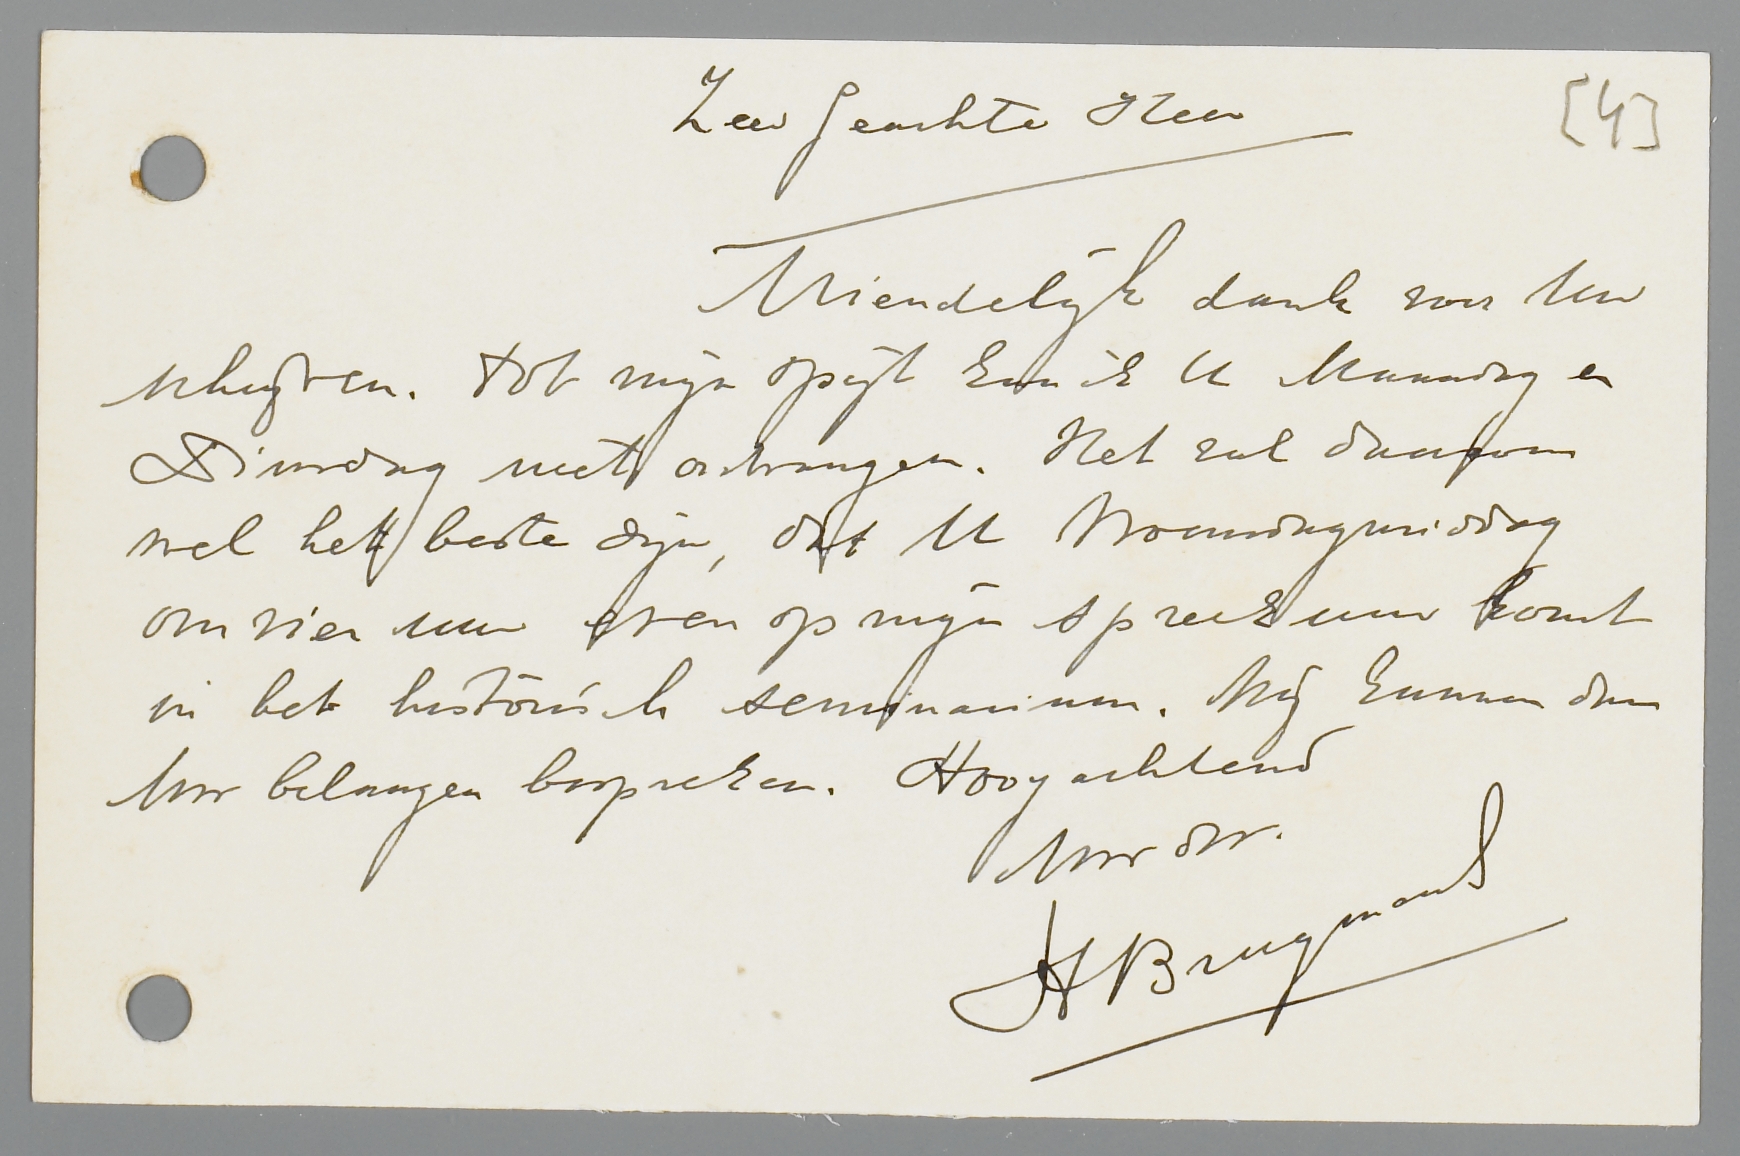 Zeer Geachte Heer
[4]
Vriendelijk dank voor Uw
schrijven. Tot mijn spijt kan ik U Maandag en
Dinsdag niet ontvangen. Het zal daarom
wel het beste zijn, dat U Woensdagmiddag
om vier uur even op mijn spreekuur komt
in het historisch seminarium. Wij kunnen dan
Uw belangen bespreken. Hoogachtend
Uw dw.
H Brugmans